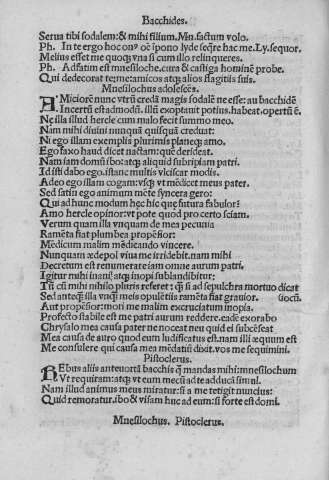 Bacchides.
Serua tibi sodalem: & mihi filium. Mn. factum volo.
Ph. In te ergo hoc onꝰ oē ĩpono lyde sequere hac me. Ly. sequor.
Melius esset me quoqȝ vna si cum illo relinqueres.
Ph. Adfatim est mnesiloche. cura & castiga hominē probe.
Qui dedecorat te: me: amicos atqȝ alios flagitiis suis.
Mnesilochus adolescēs.
AMiciorē nunc vtrū credā magis sodalē ne esse: au bacchidē
Incertū est admodū. illū exoptauit potius. habeat. opertū ē.
Ne illa illud hercle cum malo fecit summo meo.
Nam mihi diuini nunquā quisquā creduat:
Ni ego illam exemplis plurimis planeqȝ amo.
Ego faxo haud dicet nactam: quē derideat.
Nam iam domū ibo: atqȝ aliquid subripiam patri.
Id isti dabo ego. istanc multis vlciscar modis.
Adeo ego illam cogam: vsqȝ vt mēdicet meus pater.
Sed satin ego animum mēte syncera gero:
Qui ad hunc modum hec hic que futura fabulor?
Amo hercle opinor: vt pote quod pro certo sciam.
Verum quam illa vnquam de mea pecunia
Ramēta fiat plumbea propēsior:
Mēdicum malim mēdicando vincere.
Nunquam ædepol viua me irridebit. nam mihi
Decretum est renumerare iam omne aurum patri.
Igitur mihi inani atqȝ inopi sublandibitur:
Tū cū mihi nihilo pluris referet: q̃ si ad sepulchra mortuo dicat
Sed autē q̃ illa vnq̃ meis opulētiis ramēta fiat grauior. iocū.
Aut propēsior: mori me malim excruciatum inopia.
Profecto stabile est me patri aurum reddere. eadē exorabo
Chrysalo mea causa pater ne noceat neu quid ei subcēseat
Mea causa de auro quod eum ludificatus est. nam illi æquum est
Me consulere qui causa mea mēdatiū dixit. vos me sequimini.
Pistoclerus.
REbus aliis anteuortā bacchis q̃ mandas mihi: mnesilochum
Vt requiram: atqȝ vt eum mecū ad te adducā simul.
Nam illud animus meus miratur: si a me tetigit nuncius:
Quid remoratur. ibo & visam huc ad eum: si forte est domi.
Mnesilochus. Pistoclerus.